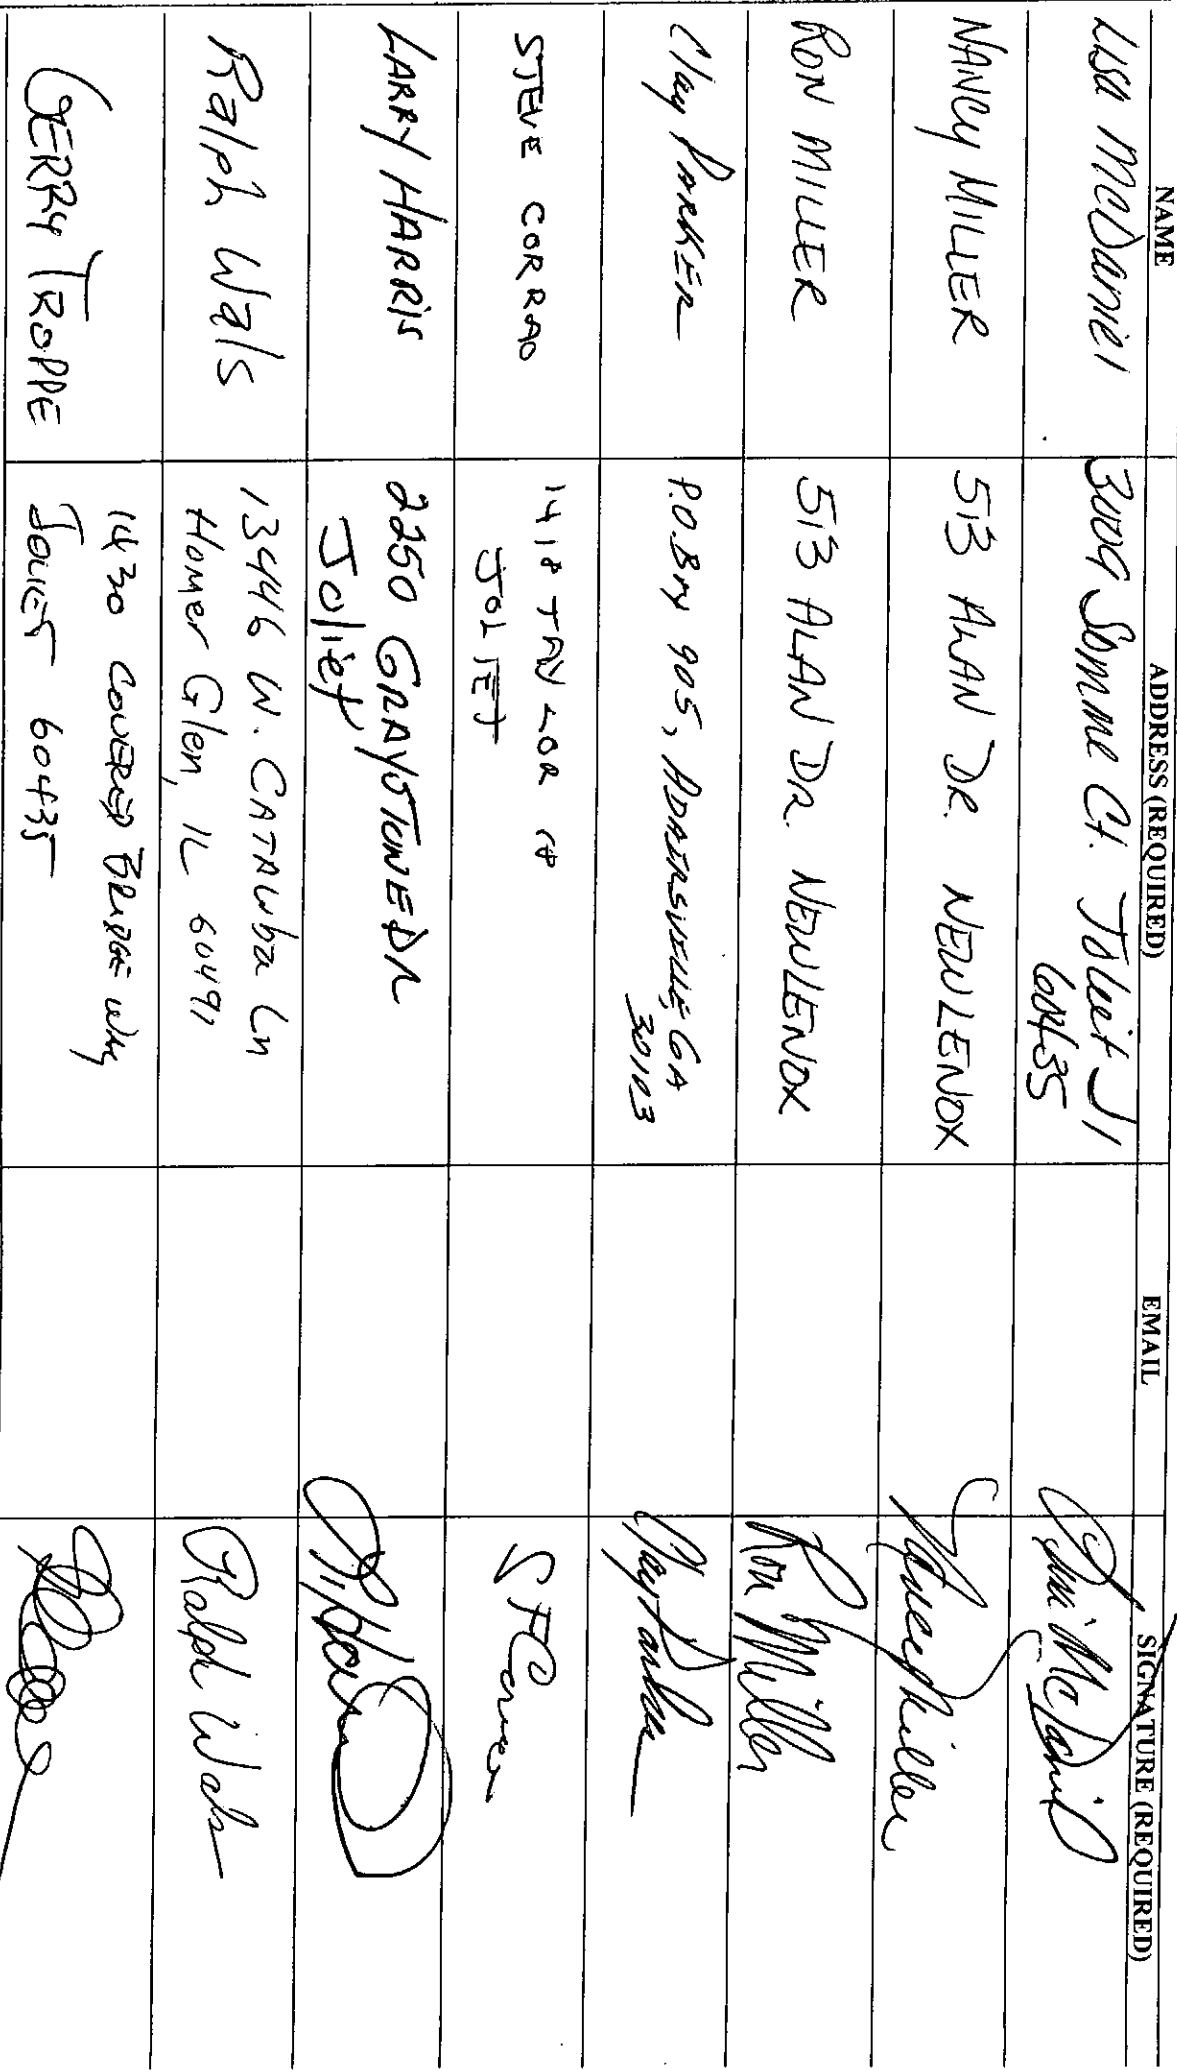 NAME ADDRESS (REQUIRED) EMAIL SIGNATURE (REQUIRED)
Lisa McDaniel 3009 Somme Ct. Joliet Il
60435
NANCY MILLER 513 ALAN DR. NEW LENOX
RON MILLER 513 ALAN DR. NEW LENOX Ron Miller
Clay PARKER P.O. Box 905, ADAIRSVILLE, GA Clay Parker
30103
STEVE CORRADO 1418 TAYLOR
JOLIET
LARRY HARRIS 2250 GRAYSTONE DR
Joliet
Ralph Wals 13446 W. CATAWba Ln Ralph Wals
Homer Glen, IL 60491
GERRY TROPPE 1430 COVERED BRIDGE WAY
JOLIET 60435